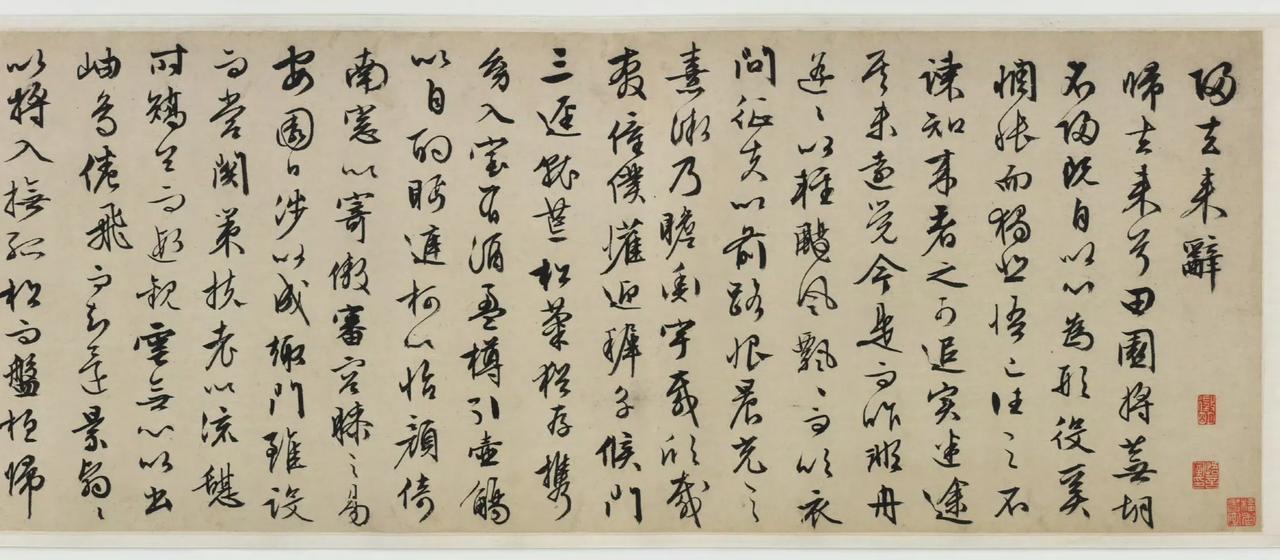 歸去来辭
帰去来兮田園将蕪胡
不歸既自以心為形役奚
惆悵而獨悲悟已往之不
諫知来者之可追実迷途
其未遠覚今是而昨非舟
遥〻以輕颺風飄〻而吹衣
問征夫以前路恨晨光之
熹微乃瞻衡宇載欣載
奔僮僕懽迎稚子候門
三逕就荒松菊猶存携
幼入室有酒盈樽引壷觴
以自酌眄庭柯以怡顔倚
南窓以寄傲審容膝之易
安園日渉以成趣門雖設
而常関策扶老以流憩
時矯首而遐観雲無心以出
岫鳥倦飛而知還景翳〻
以将入撫孤松而盤桓帰